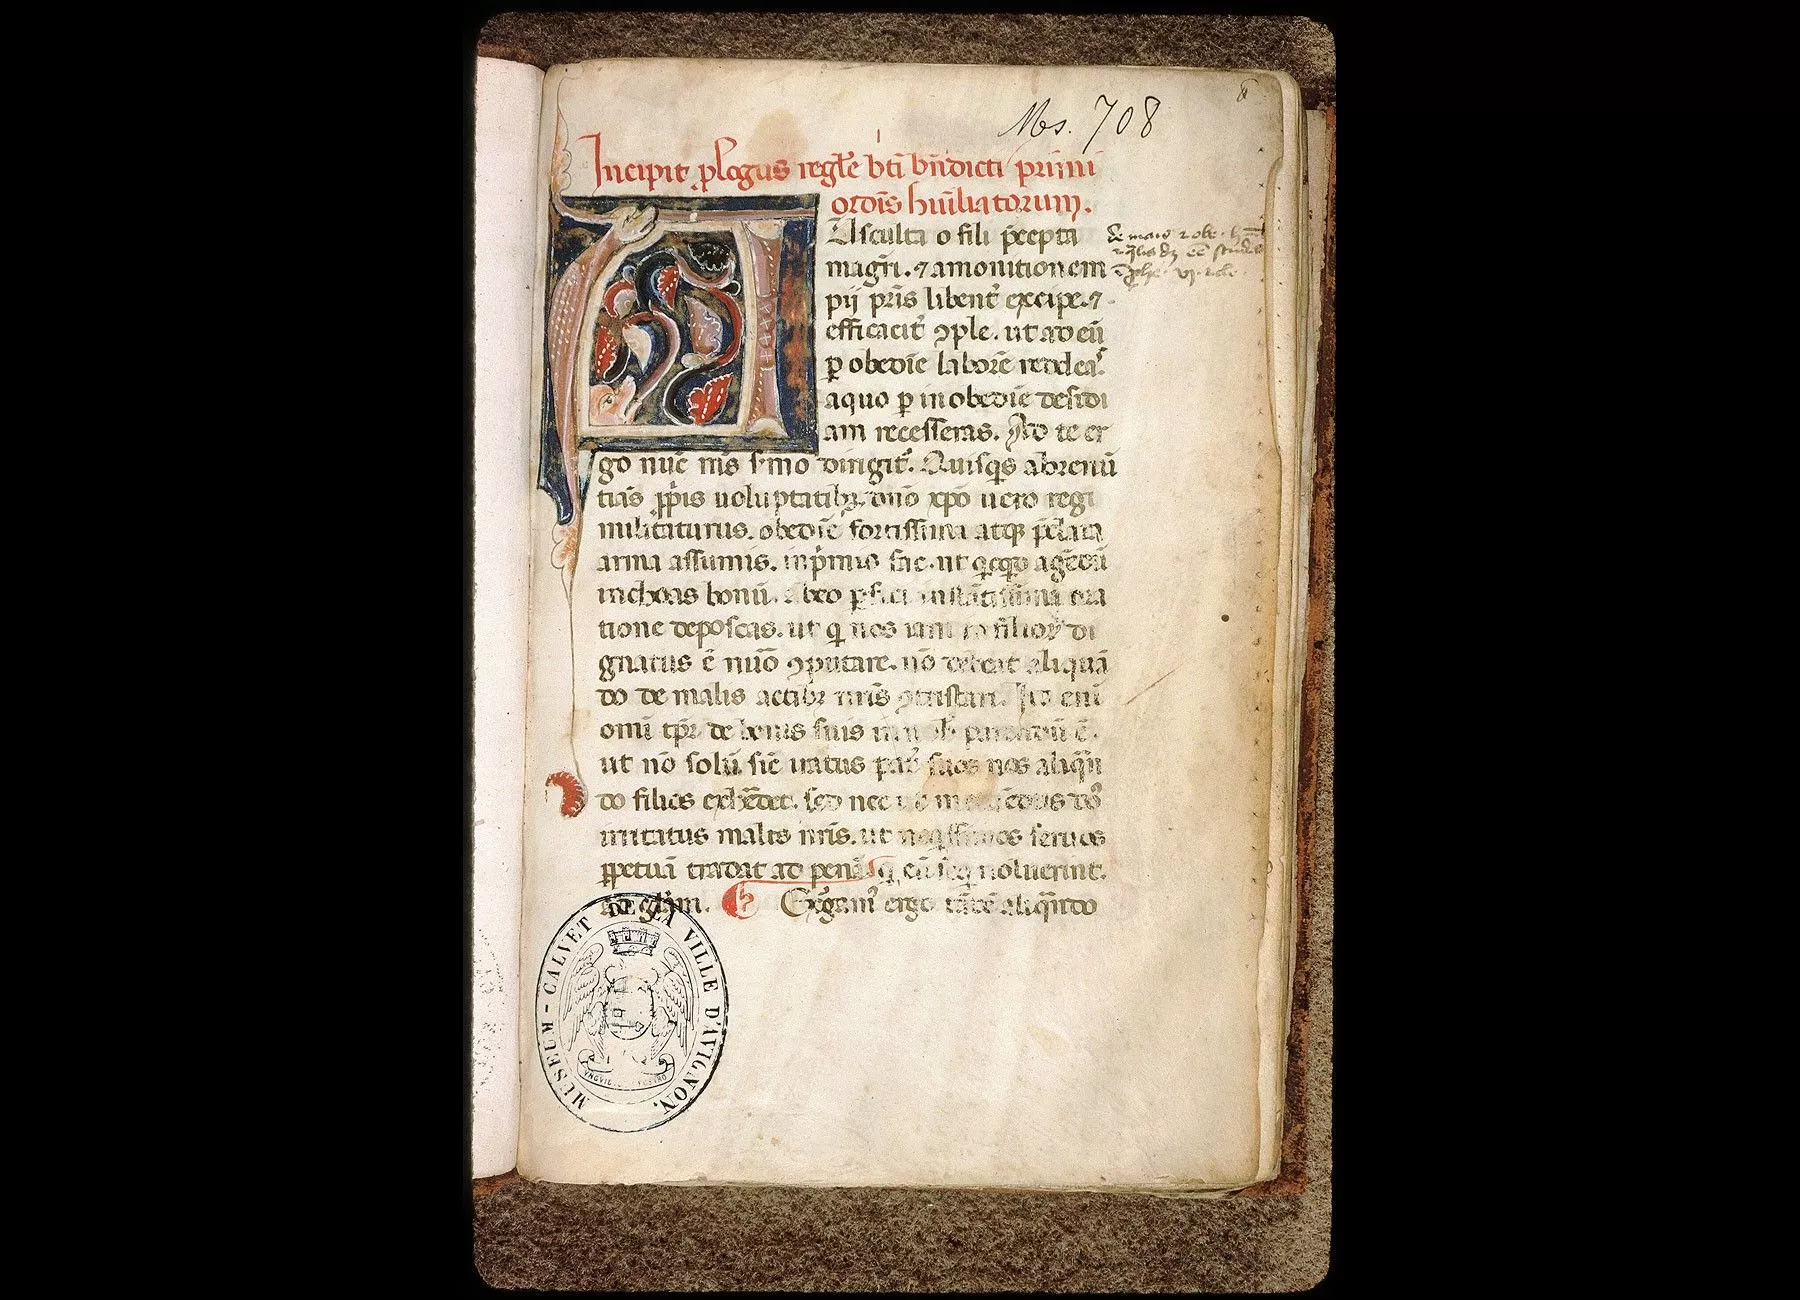 Ms. 708
Incipit plogus regłe bti bn̄dicti primi
ordīs hūiliatorum.
Asculta o fili p̄cepta
magr̄i. ⁊ amonitionem
pij pr̄is libent̄ excipe. ⁊
efficacit̄ ꝯple. ut ad eū
ꝑ obediē laborē reddeaˢ
a quo ꝑ inobediē desidi
am recesseras. Ad te er
go nūc m̄s s̄mo dirigit̄. Quisqs abrenū
tiās ꝓpis uoluptatibꝫ. dn̄o xp̄o uero regi
militaturus. obediē fortissima atqꝫ p̄clara
arma assumis. inp̄mis ut agēdū
inchoas bonū. ab eo instātissima ora
tione deposcas. ut q nos iam filioꝝ di
gnatus ē nūo ꝯputare. nō debeat aliquā
do de malis actibꝫ nr̄is ꝯtristari. Ita eni
omi tp̄r de bonis suis ē.
ut nō solū sic iratus pat̄ suos nos aliqn̄
do filios exhēdet. sed nec
irritatus malis nr̄is. ut neqssimos seruos
ꝑpetuā tradat ad penā q eū seq noluerint.
ad glām. Exgamꝰ ergo tādē aliqn̄do
MUSEUM-CALVET DE LA VILLE D'AVIGNON.